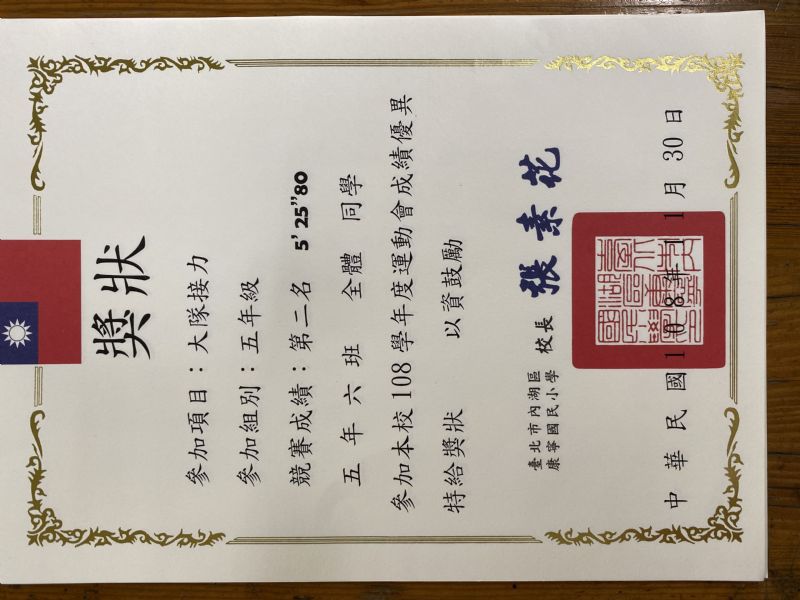 獎狀
參加項目：大隊接力
參加組別：五年級
競賽成績：第二名 5'25"80
五年六班 全體 同學
參加本校108學年度運動會成績優異
特給獎狀 以資鼓勵
臺北市內湖區
康寧國民小學
校長 張素花
中華民國108年11月30日